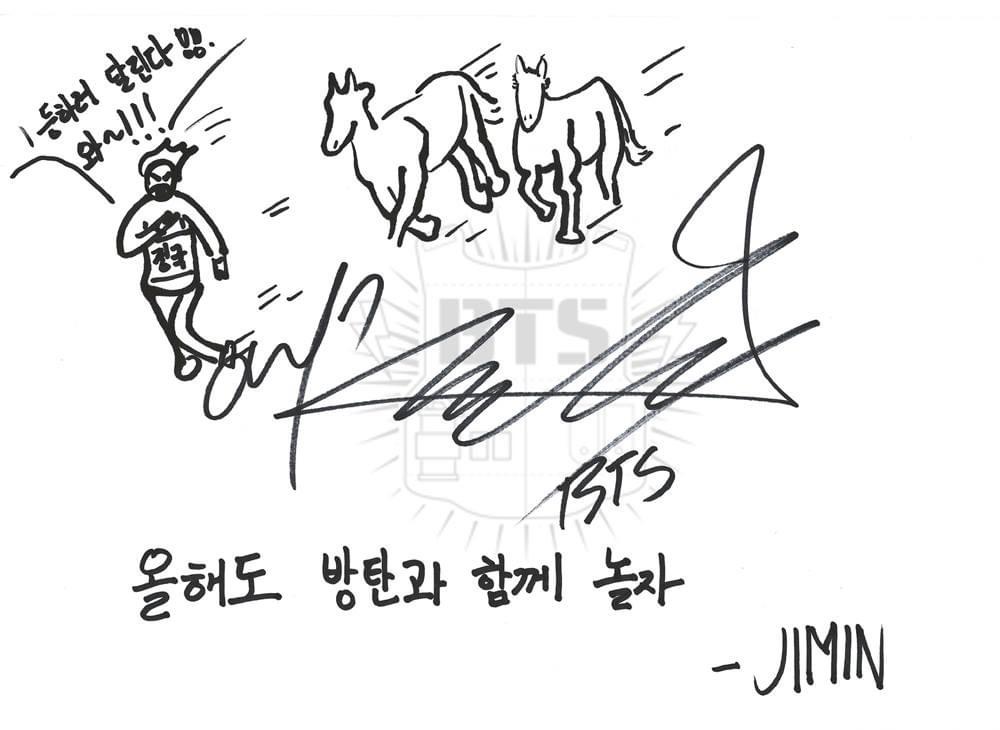 1등하러 달린다
와~!!!
정국
BTS
BTS
올해도 방탄과 함께 놀자
- JIMIN